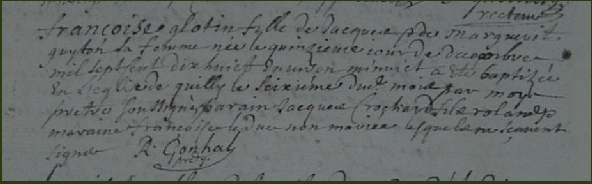 recteur
françoise glotin fylle de Jacques & de margueritte
guyton sa femme née le quinzieme iour de decembre
mil sept cent dix huict environ minuict a été baptizée
en l'eglise de quilly le seixieme dud. mois par moy
prêtre soussigné parain Jacques Crochard fils rolland &
maraine françoise le duc non mariée lesquels ne scavent
signer R. Gonhal
prêtre